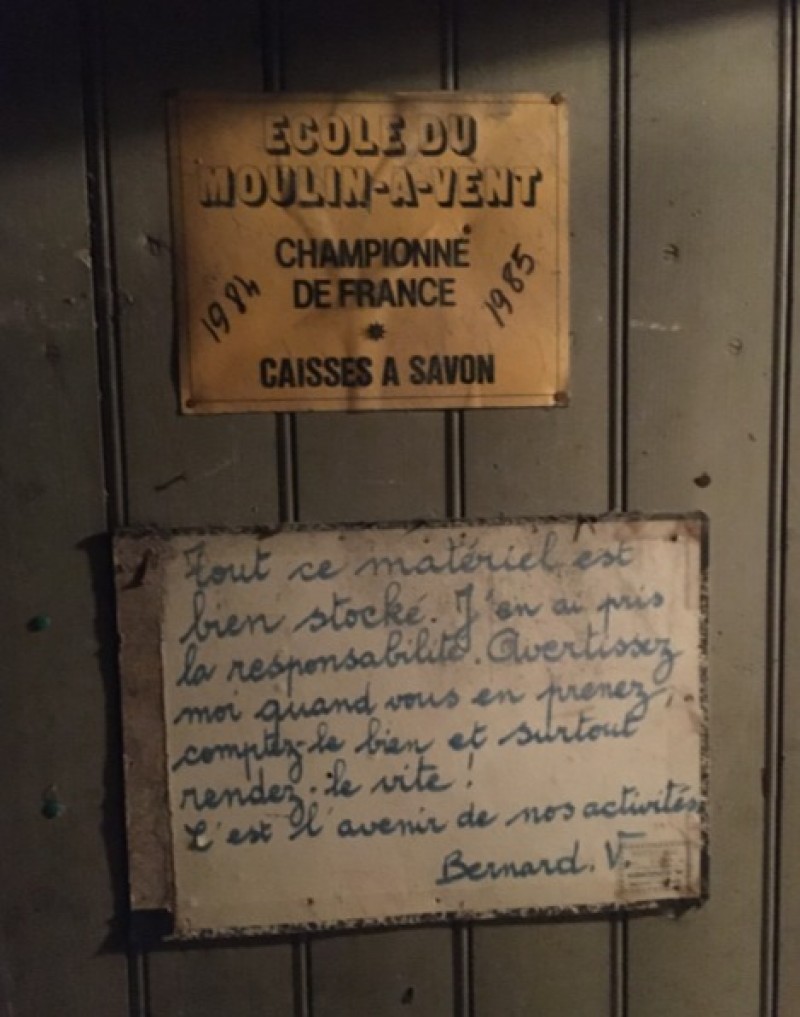 ECOLE DU
MOULIN-A-VENT
CHAMPIONNE
DE FRANCE
1984
1985
CAISSES A SAVON
Tout ce matériel est
bien stocké. J'en ai pris
la responsabilité. Avertissez
moi quand vous en prenez,
comptez-le bien et surtout
rendez-le vite !
C'est l'avenir de nos activités
Bernard. V.